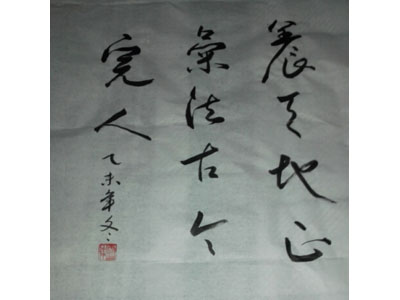 养天地正
氣法古今
完人乙未年文冬